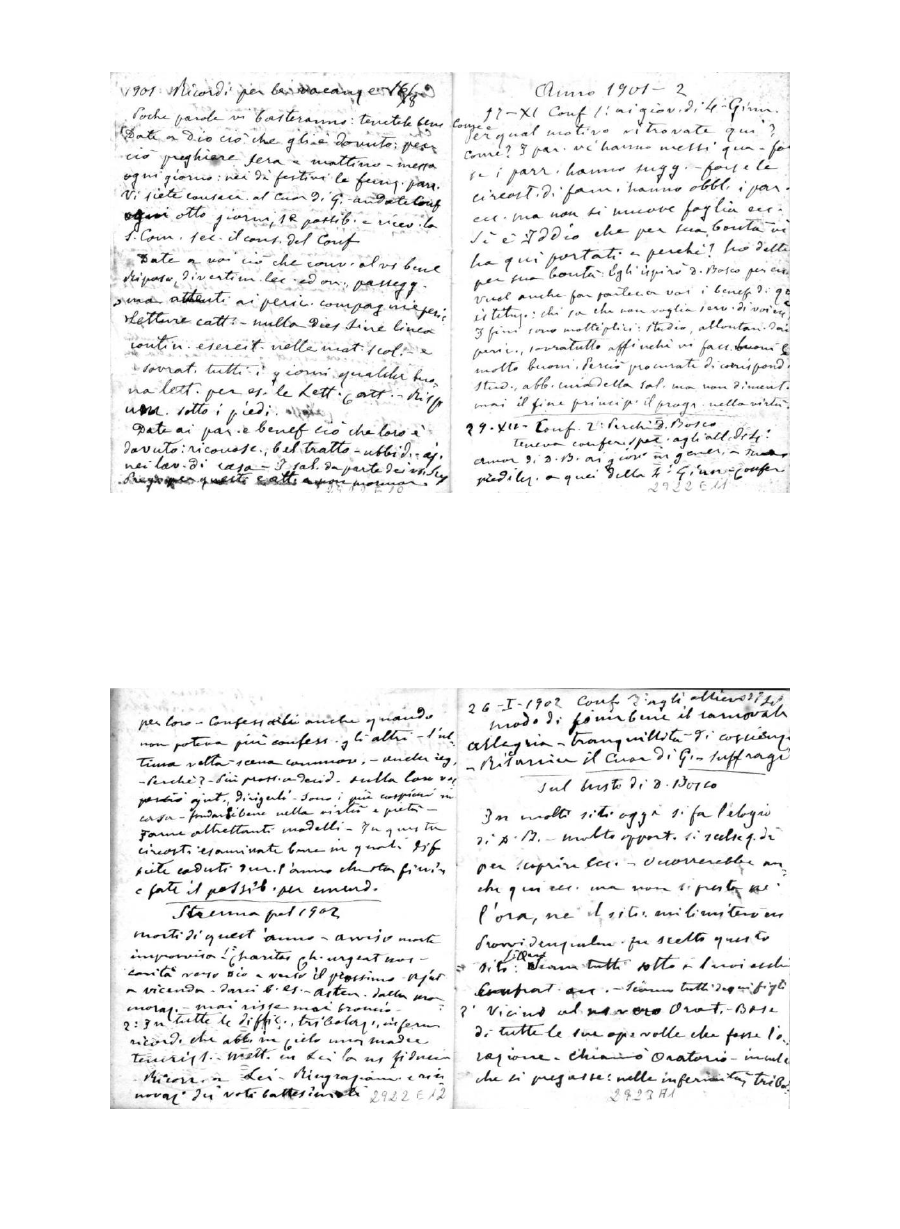 1901. Ricordi per le vacanze
Poche parole vi basteranno: tenetele bene
Date a Dio ciò che gli è dovuto: per
ciò preghiere sera e mattino - messa
ogni giorno: nei dì festivi le funz. parr.
Vi siete consacr. al Cuor di G. andate Conf
ogni otto giorni, se possib. e ricev. la
S. Com. sec. il cons. del Conf
Date a voi ciò che conv. al vi bene
Riposo, divertim. lec. ed on. passegg.
ma attenti ai peric. compagnie peric.
Letture catt. - nulla dies sine linea
contin. esercit. nelle mat. scol. - e
sovrat. tutti i giorni qualche buo-
na lett. per es. le Lett. Catt. - Risp
um. sotto i piedi.
Date ai par. e benef ciò che loro è
dovuto: riconosc., bel tratto - ubbid. - aj.
nei lav. di casa - I sal. da parte dei
Prego per questo e att. a non
Anno 1901-2
17-XI Conf 1.ª ai giov. di 4ª Ginn.
Per qual motivo vi trovate qui?
Come? I par. vi hanno messi qua - for
se i parr. hanno sugg. - forse le
circost. di fam. hanno obbl. i par.
ecc. ma non si muove foglia ecc.
Sì è Iddio che per sua bontà vi
ha qui portati e perchè? ho detto
per sua bontà. Egli ispirò D. Bosco per
vuol anche far partecip. voi i benef. di q
istituz.: chi sa che non voglia serv. di voi
I fini sono molteplici: studio, allontan. dai
peric., sovratutto affinchè vi facc. buoni e
molto buoni. Perciò procurate di corrispond.
stud., abb. cura della sal. ma non diment.
mai il fine princip. il progr. nella virtù.
29-XII- Conf. 2ª Perchè D. Bosco
teneva confer. spec. agli all. di 4ª
amor di D. B. ai giov. in gener. e
predilez. a quei della 4ª Ginn - Confer
2922 E 11
per loro - Confess. anche quando
non poteva più confess. gli altri - L'ul-
tima volta - scena commov. - anche
- Perchè? - Più pross. a decid. sulla loro voc
perciò ajut., dirigerli - Sono i più cospicui in
casa - fondarsi bene nella virtù e pietà -
Farne altrettanti modelli - In queste
circost. esaminate bene in quali dif
siete caduti dur. l'anno che sta finire
e fate il possib. per emend.
Strenna pel 1902
morti di quest'anno - avviso morte
improvvisa 1ª Charitas Ch. urget nos -
carità verso Dio e verso il prossimo - ajut
a vicenda - darci b. es. - asten. dalla mor
moraz. - mai risse mai broncio -
2: In tutte le diffic., tribolaz., inferm
ricord. che abb. in cielo una madre
teneriss. - mett. in Lei la ns fiducia
Ricorr. a Lei - Ringraziam. e rin
novaz. dei voti battesimali
2922 E 12
26-I-1902 Conf 3ª agli allievi di 4ª
modo di finir bene il carnovale
allegria - tranquillità di coscienza
- Ritenere il Cuor di G. - suffragi
Sul busto di D. Bosco
In molti siti oggi si fa l'elogio
di D. B. - molto opport. si scelse q. dì
per scoprire ecc. - Occorrerebbe an
che qui ecc. ma non si presta nè
l'ora, nè il sito. mi limiterò
Provvidenzialm. fu scelto questo
sito: Siamo tutti sotto a' suoi occhi
- Siamo tutti suoi figli
2° Vicino al ns vero Orat. - Base
di tutte le sue op. volle che fosse l'o-
razione - Chiamò Oratorio - inculc
che si pregasse: nelle infermità, tribo.
2923 A1